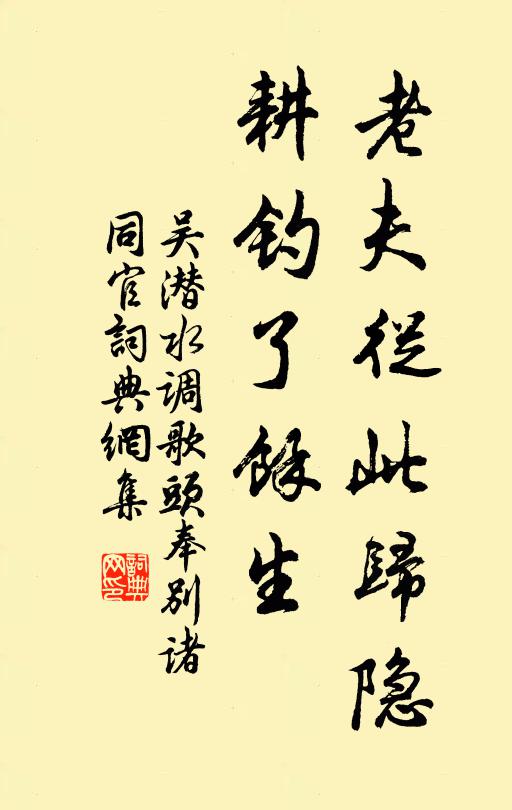 老夫從此歸隐
耕钓了餘生
吴潜水调歌頭奉別诸
同官詞典網集
詞典
网印